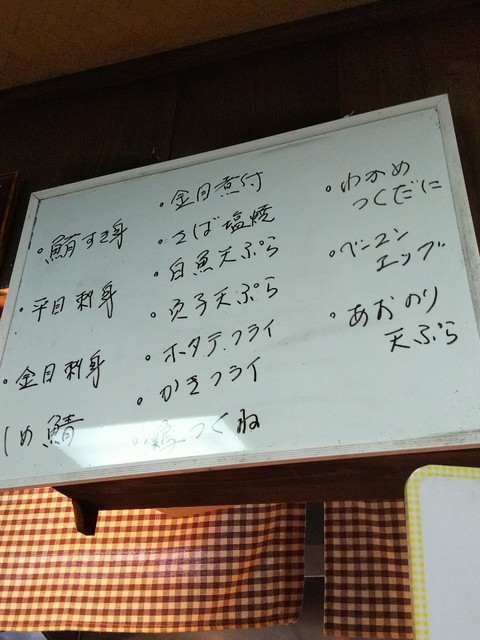 ・鯖すき身
・平目刺身
・金目刺身
しめ鯖
・金目煮付
・さば塩焼
・白魚天ぷら
・貝子天ぷら
・ホタテ.フライ
・かきフライ
・鶏つくね
・わかめ
つくだに
・ベーコン
エッグ
・あおのり
天ぷら